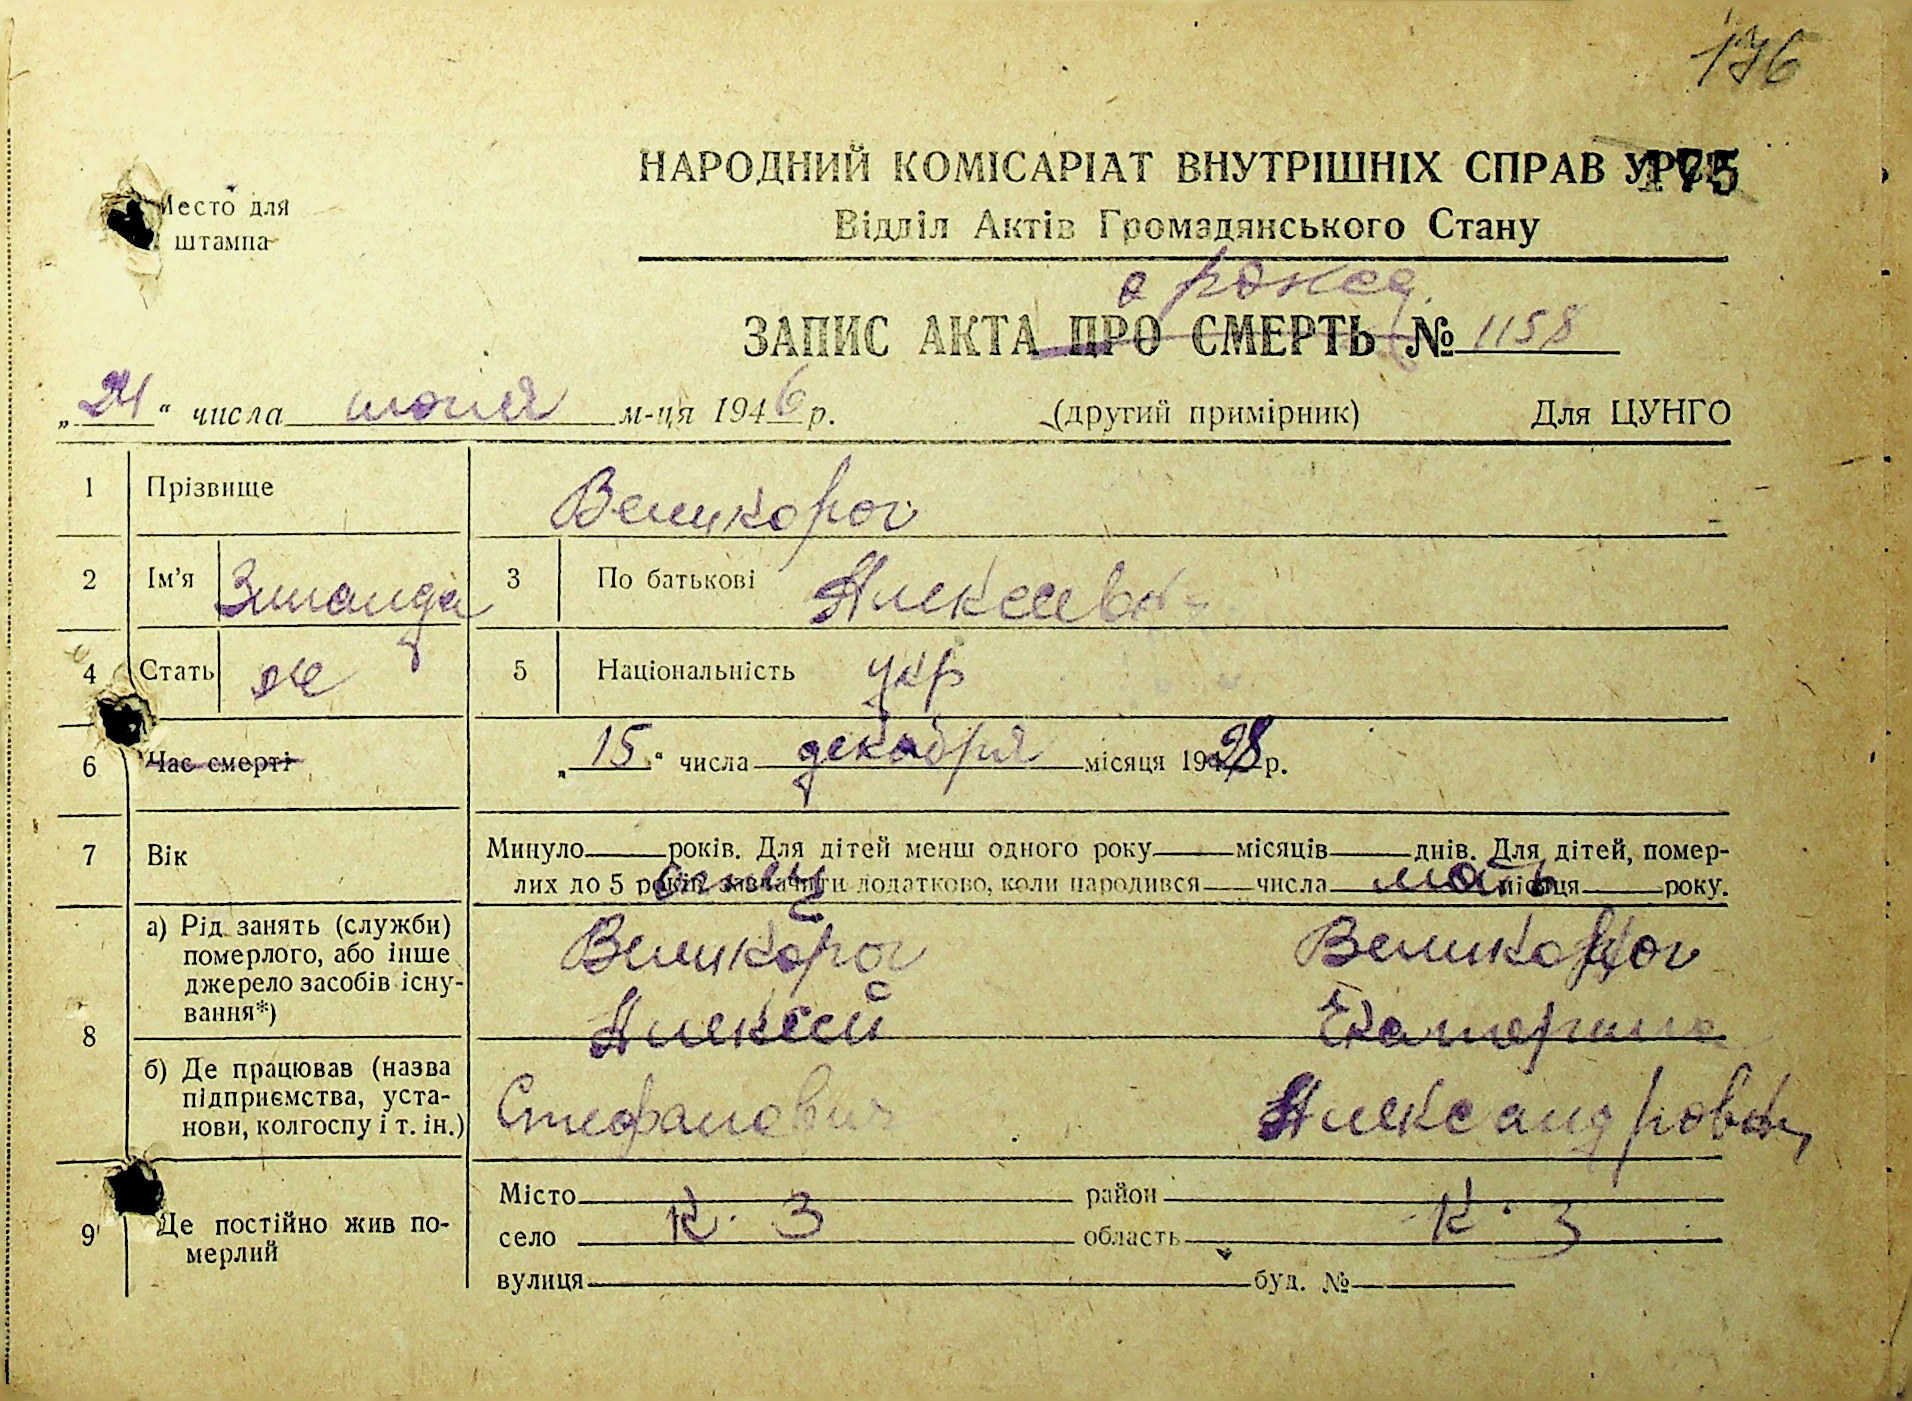 176
НАРОДНИЙ КОМІСАРІАТ ВНУТРІШНІХ СПРАВ УРСР 175
Место для
штампа
Відділ Актів Громадянського Стану
о рожд.
ЗАПИС АКТА ПРО СМЕРТЬ № 1158
„24“ числа июня м-ця 1946 р. (другий примірник) Для ЦУНГО
1 Прізвище Великорог
2 Ім'я Зинаида 3 По батькові Алексеевн-
4 Стать ж 5 Національність укр
6 Час смерті „15“ числа декабря місяця 1928 р.
7 Вік Минуло років. Для дітей менш одного року місяців днів. Для дітей, помер-
лих до 5 років зазначити додатково, коли народився числа місяця року.
отец мать
8 а) Рід занять (служби) померлого, або інше джерело засобів існу-вання*)
Великорог Великорог
Алексей Екатерина
б) Де працював (назва підприємства, уста-нови, колгоспу і т. ін.)
Стефанович Александровн
9 Де постійно жив по-мерлий
Місто район
К. З К. З
село область
вулиця буд. №